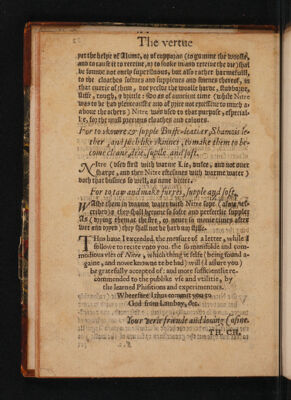 The vertue
yet the helpe of Alume, oz of coppozas (to gumme the woolle,
and to cause it to receiue, oz to sooke in and receiue the die) shal
be founde not onely superfluous, but also rather harmefull,
to the cloathes softnes and supplenes and finenes thereof, in
that eueris of them, doe render the woolle harde, stubborne,
stiffe, tough, & bzittle: so as of auncient time (whyle Nitre
was to be had plenteouslie and of pzice not excessiue to much a-
boue the others) then Nitre was used to that purpose, especial-
lie, foz the most pzecious cloathes and colours.
For to skowre & supple Buffe-leatiar, Shamois le-
ther, and such like skinnes, to make them to be-
come cleane, drie, supple, and soft.
Nitre (used first with warme Lie, weake, and not ouer
sharpe, and then Nitre eftsoones with warme water)
doth that busines so well, as none better.
For to taw and make furres, supple and soft,
Washe them in warme water with Nitre sope (aboue des-
cribed) & they shall become so softe and perfectlie supple,
As (dzying themat theafter, o; neuer so manietimes after
wet and dzyed) they shall not be hard noz stiffe.
THus haue I exceeded the measure of a letter, while I
followe to recite vnto you the so innumerable and com-
modious vses of Nitre, which thing if selfe (being found a-
gaine, and nowe knowne to be had) will (I assure you)
be gratefully accepted of: and more sufficientlie re-
commended to the publike vse and vtilitie, by
the learned Phisitions and experimentors.
Wherefore I thus commit you to
God from Lambay, &c.
Your verie friende and louing Cosine.
TH. CH.